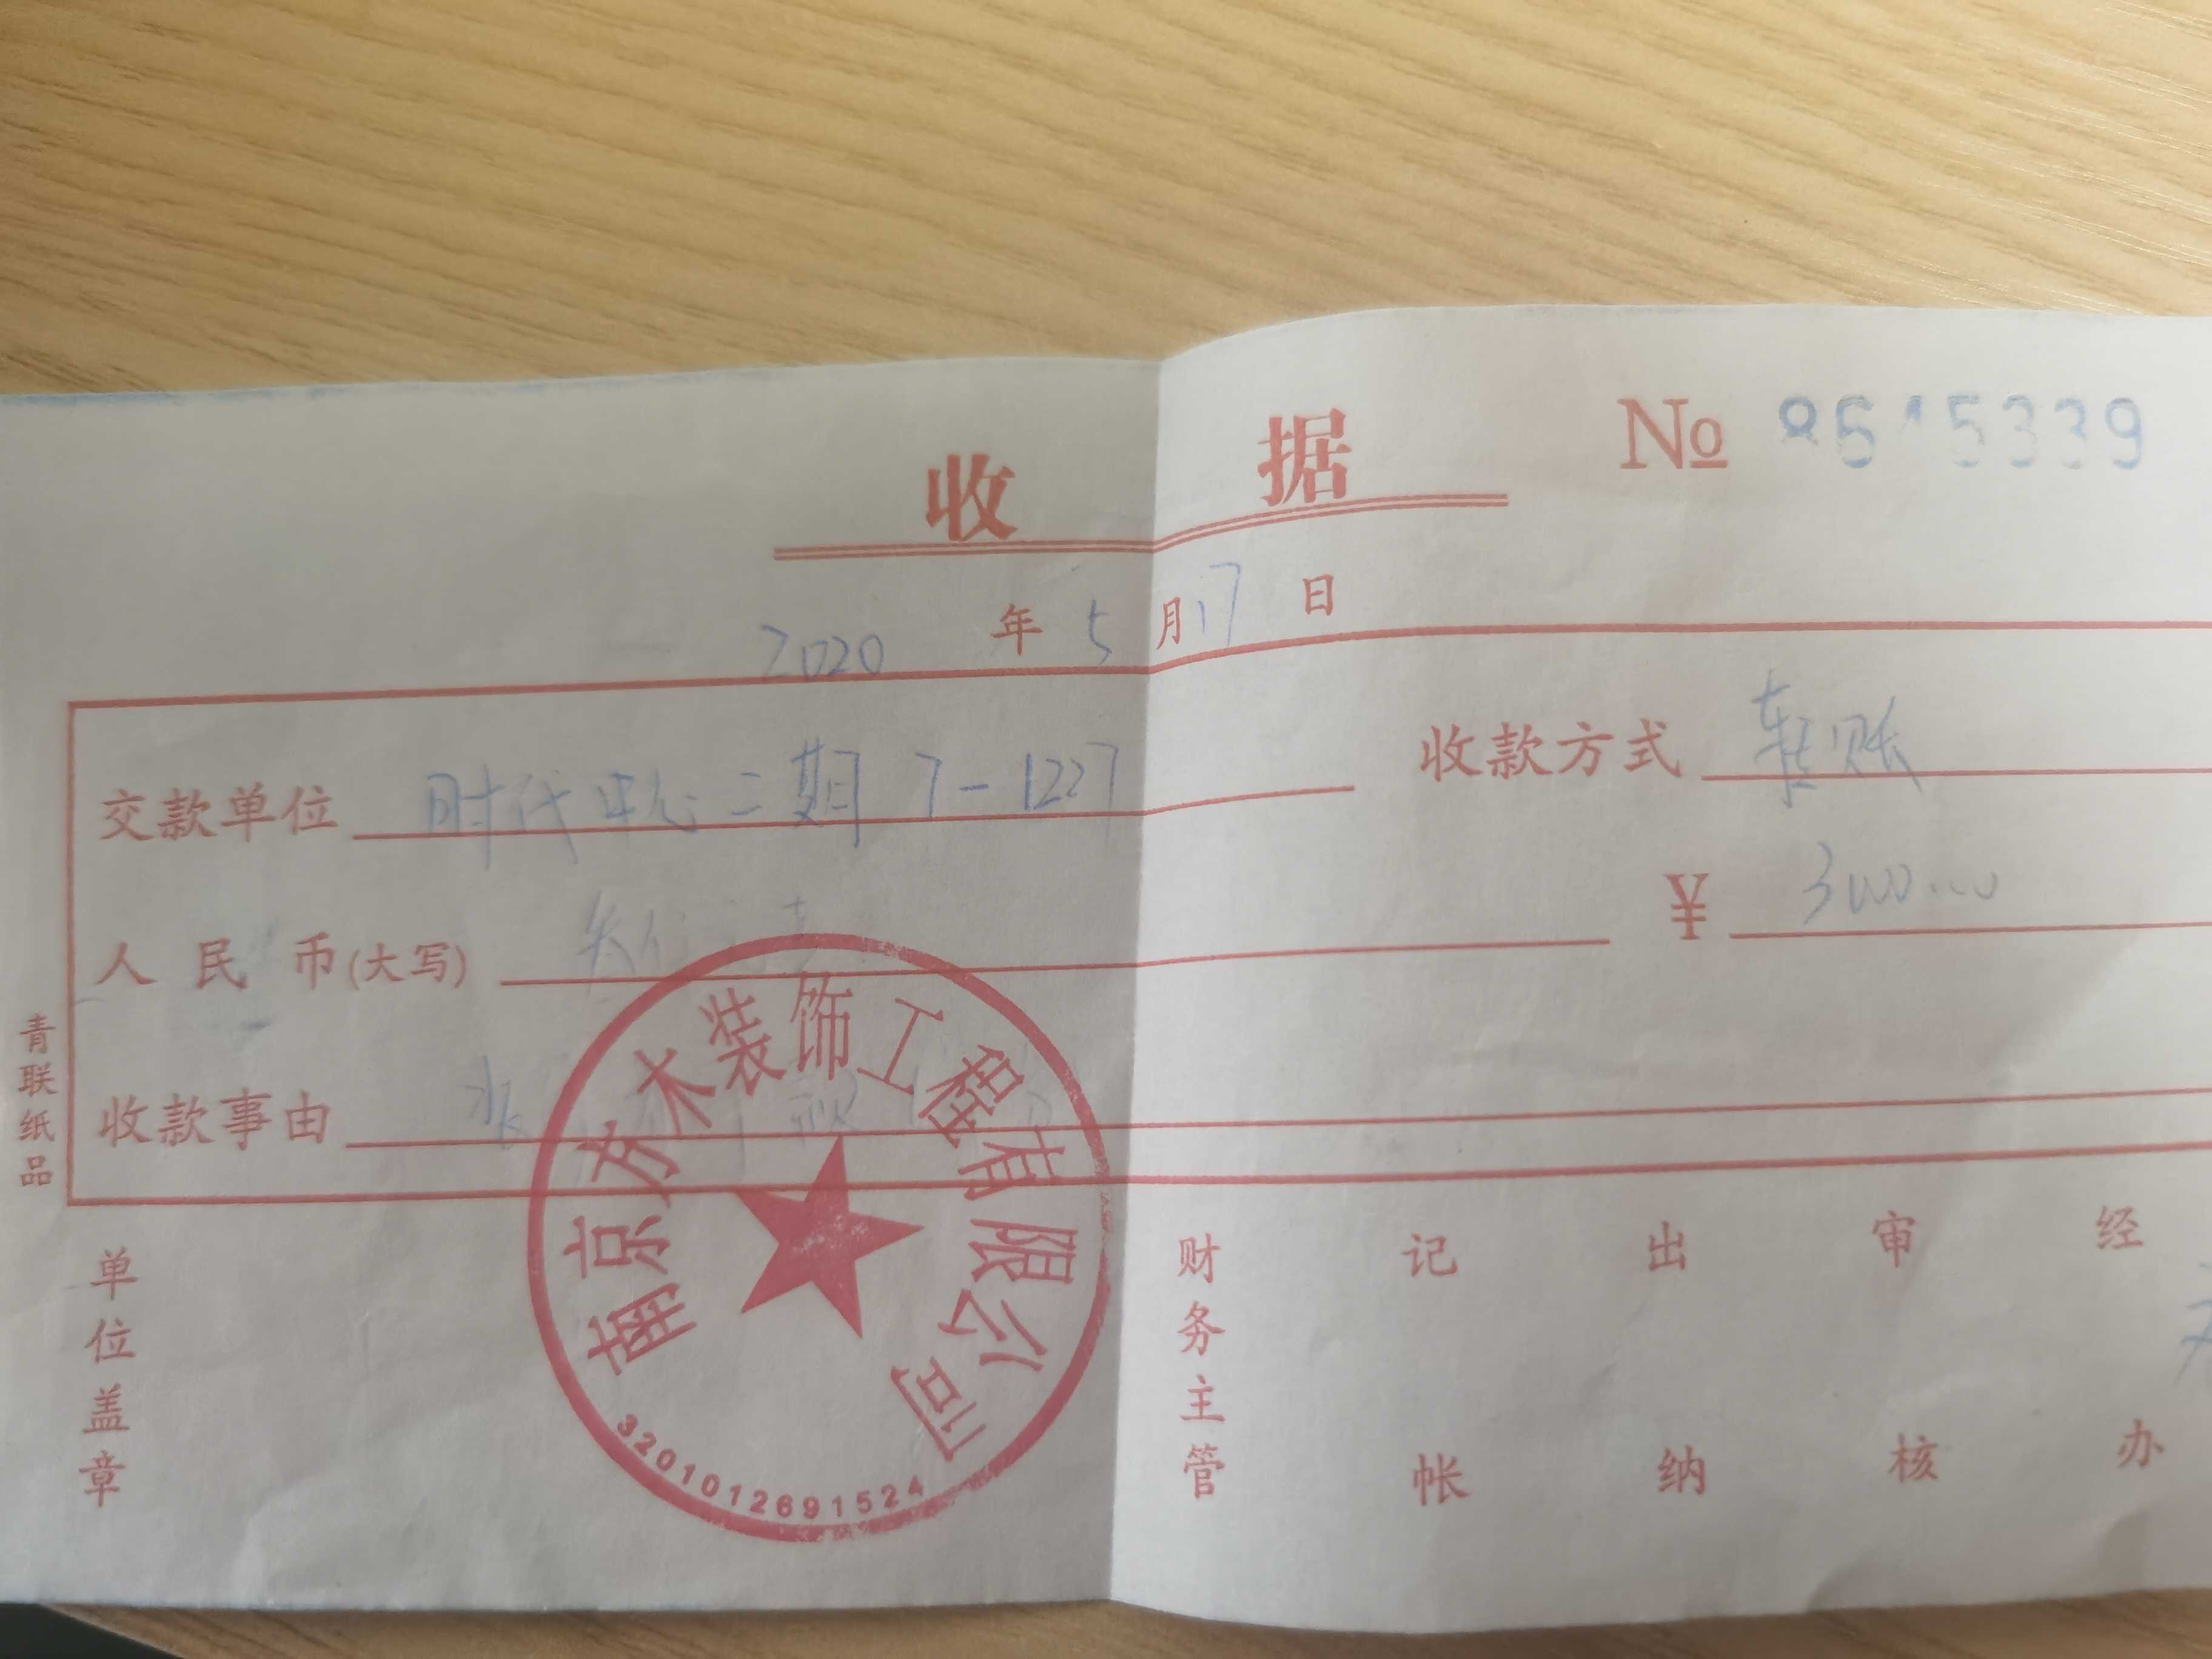 收 据 № 8615339
2020 年 5 月 17 日
交款单位 时代中心二期 7-1227 收款方式 转账
人民币(大写) ¥ 3000.00
收款事由
青联纸品
南京方木装饰工程有限公司
3201012691524
单位盖章 财务主管 记帐 出纳 审核 经办